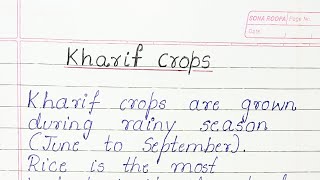 SONA ROOPA
Page No.
Date
Kharif Crops
Kharif crops are grown
during rainy season
(June to September).
Rice is the most